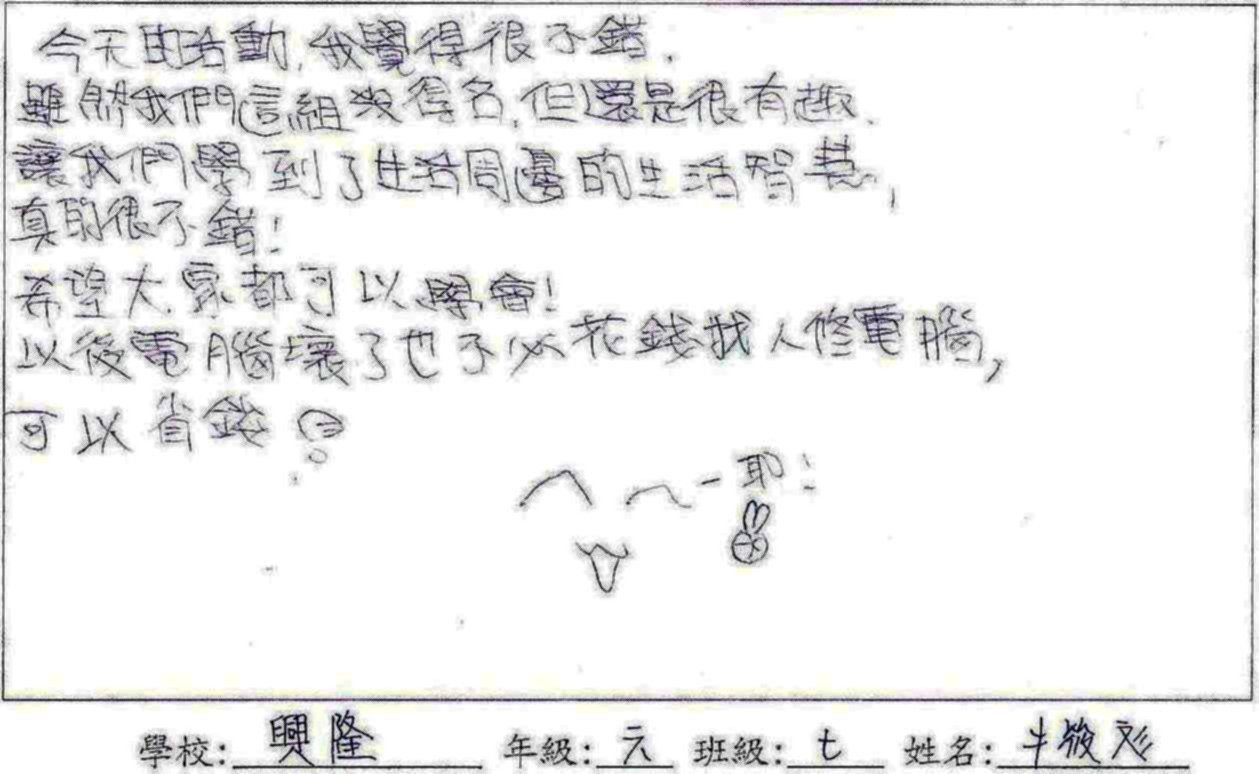 今天的活動,我覺得很不錯.
雖然我們這組沒得名,但還是很有趣.
讓我們學到了生活周邊的生活智慧,
真的很不錯!
希望大家都可以學會!
以後電腦壞了也不必花錢找人修電腦,
可以省錢
耶!
學校: 興隆 年級: 六 班級: 七 姓名: